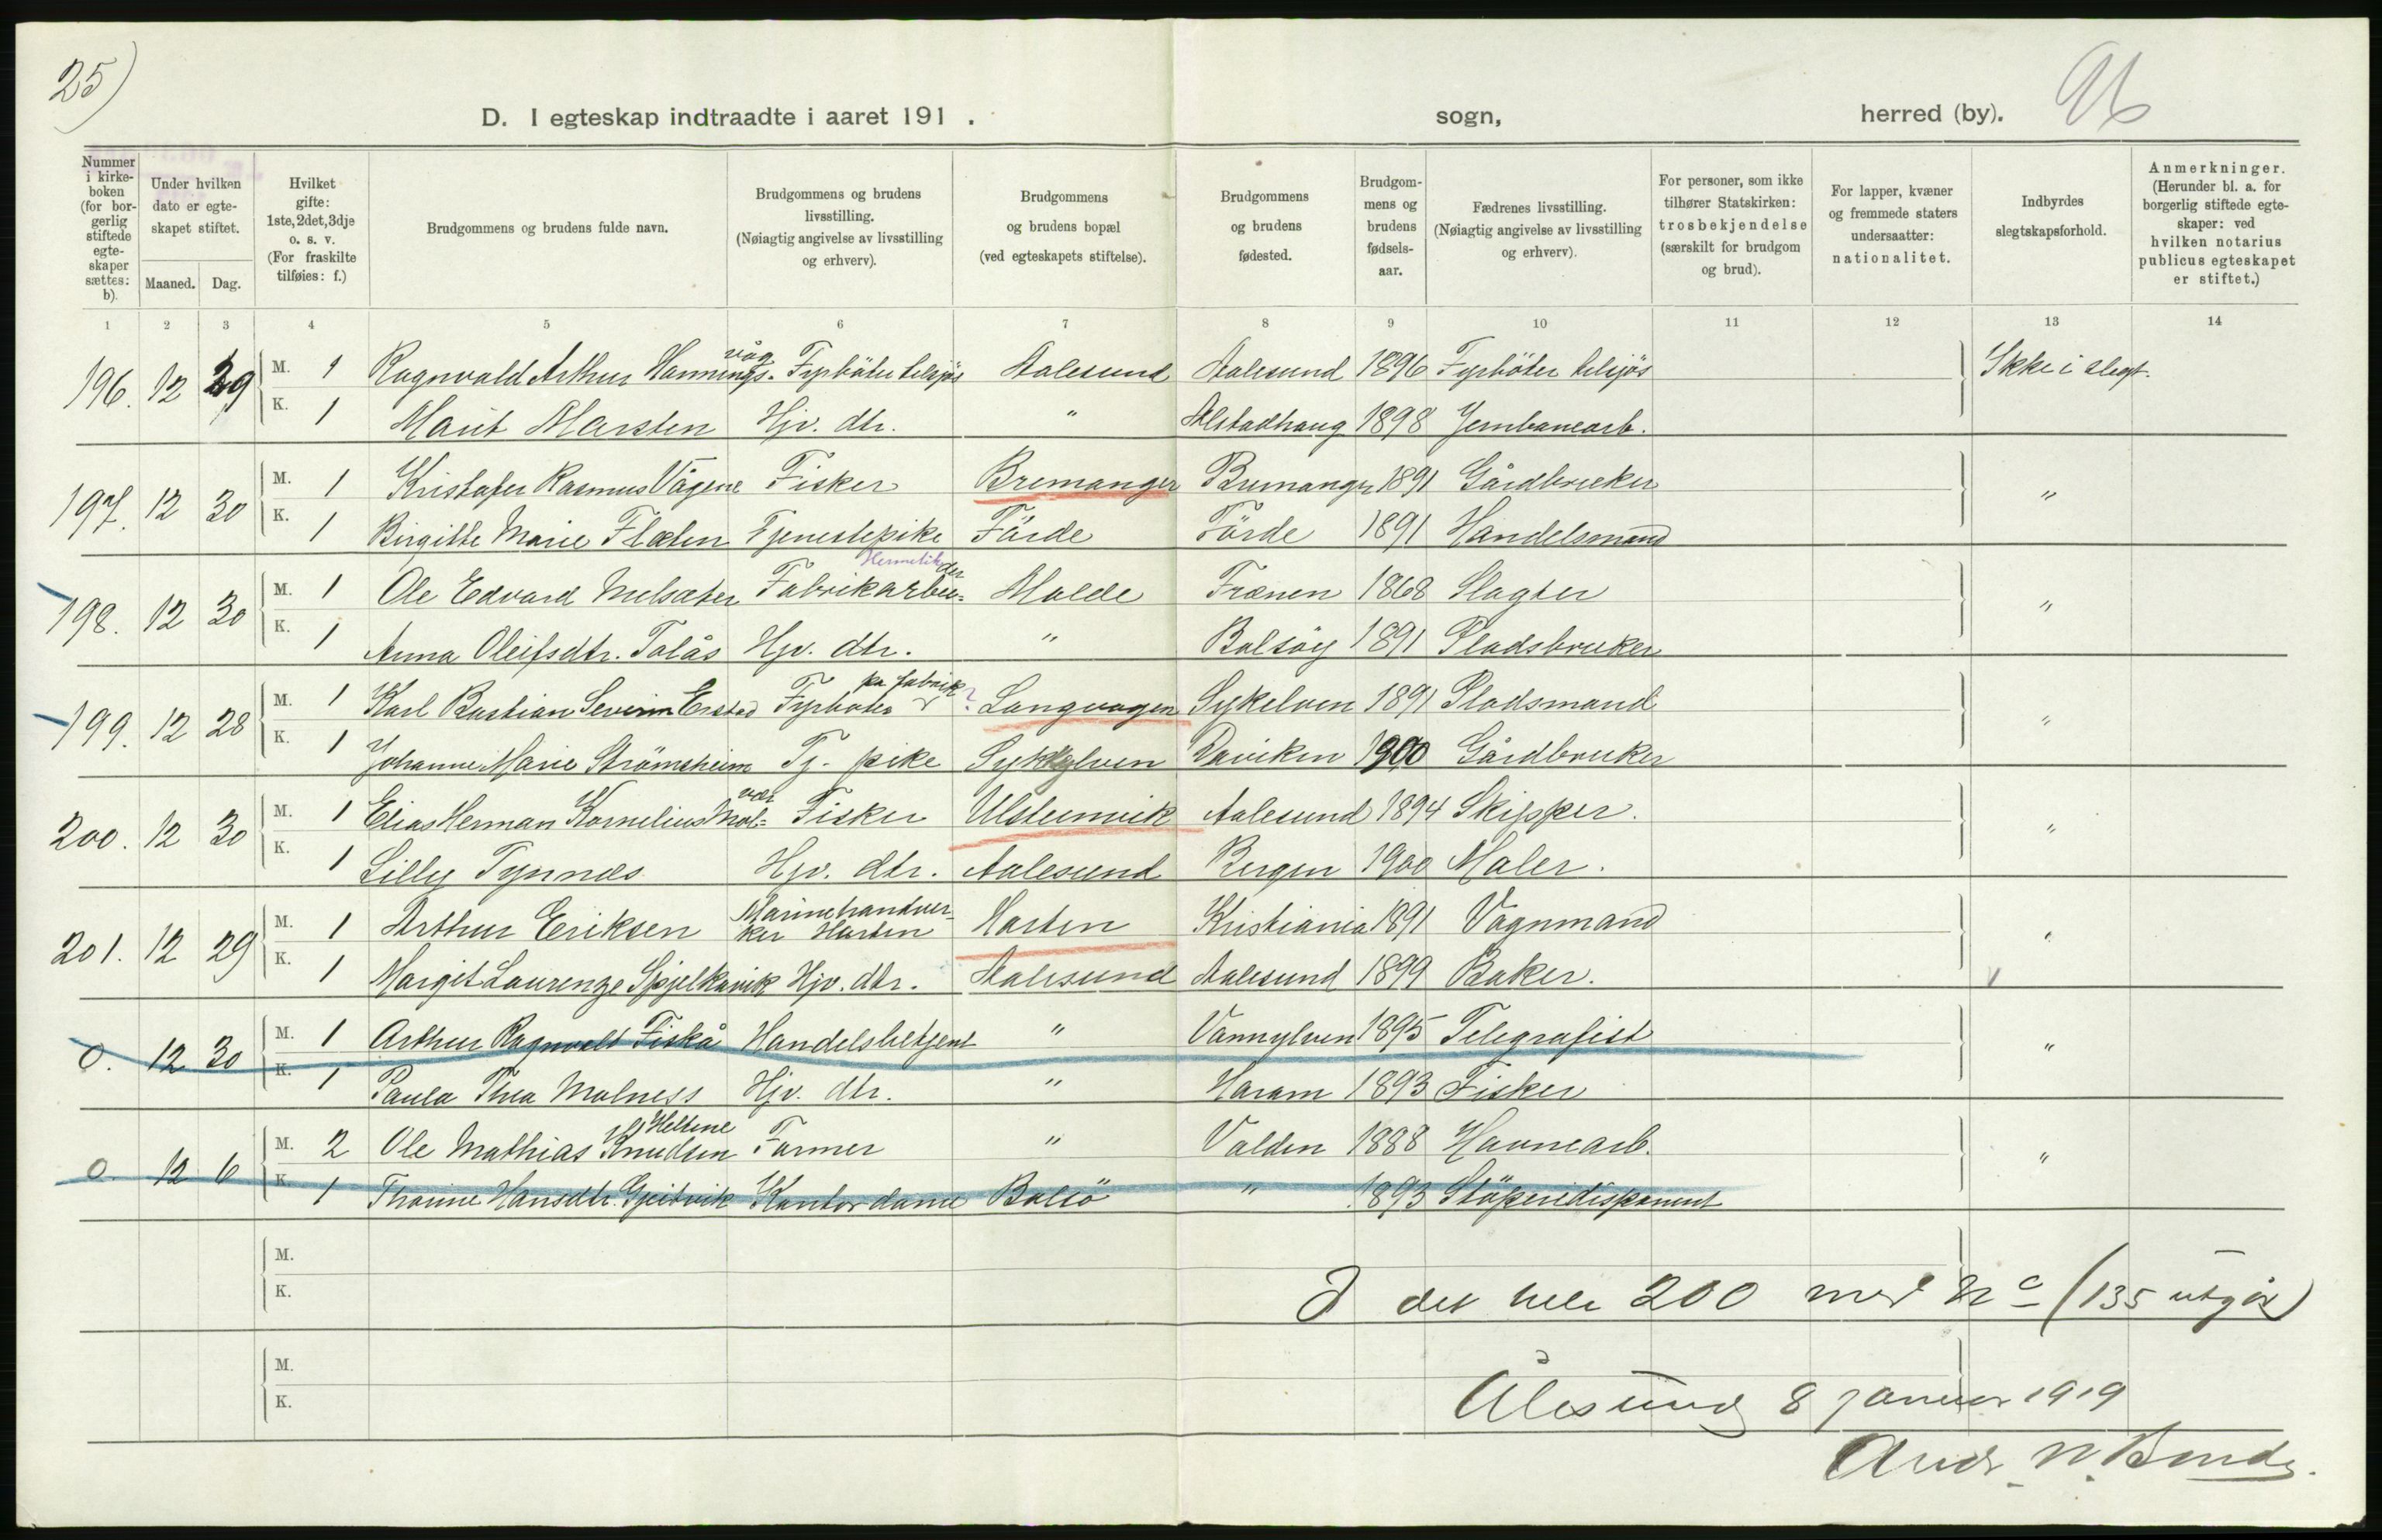 25)
D. I egteskap indtraadte i aaret 191 . sogn, herred (by).
Nummer i kirkeboken (for borgerlig stiftede egteskaper sættes: b).
Under hvilken dato er egteskapet stiftet.
Maaned. Dag.
Hvilket gifte: 1ste, 2det, 3dje o. s. v. (For fraskilte tilføies: f.)
Brudgommens og brudens fulde navn.
Brudgommens og brudens livsstilling. (Nøiagtig angivelse av livsstilling og erhverv).
Brudgommens og brudens bopæl (ved egteskapets stiftelse).
Brudgommens og brudens fødested.
Brudgommens og brudens fødselsaar.
Fædrenes livsstilling. (Nøiagtig angivelse av livsstilling og erhverv).
For personer, som ikke tilhører Statskirken: trosbekjendelse (særskilt for brudgom og brud).
For lapper, kvæner og fremmede staters undersaatter: nationalitet.
Indbyrdes slegtskapsforhold.
Anmerkninger. (Herunder bl. a. for borgerlig stiftede egteskaper: ved hvilken notarius publicus egteskapet er stiftet.)
1 2 3 4 5 6 7 8 9 10 11 12 13 14
196. 12 29 M. 1 Ragnvald Arthur Hanningsvåg Fyrböter tilsjös Aalesund Aalesund 1896 Fyrböter tilsjös Ikke i slegt.
K. 1 Marit Marsten Hjv. dtr. " Alstadhaug 1898 Jernbanearb.
197. 12 30 M. 1 Kristofer Rasmus Vågene Fisker Bremanger Bremanger 1891 Gårdbruker "
K. 1 Birgitte Marie Flæten Tjenestepike Förde Förde 1891 Handelsmand
198. 12 30 M. 1 Ole Edvard Melsæter Hermetik Fabrikarbeider Molde Frænen 1868 Slagter "
K. 1 Anna Oleifsdtr. Tolås Hjv. dtr. " Bolsöy 1891 Pladsbruker
199. 12 28 M. 1 Karl Bastian Severin Erstad Fyrböter pa fabrik ? Langvagen Sykelven 1891 Pladsmand "
K. 1 Johanne Marie Strömsheim Tj. pike Sykkylven Daviken 1900 Gårdbruker
200. 12 30 M. 1 Elias Herman Kornelius Molvær Fisker Ulsteinvik Aalesund 1894 Skipper. "
K. 1 Lilly Tynnæs Hjv. dtr. Aalesund Bergen 1900 Maler.
201. 12 29 M. 1 Arthur Eriksen Marinehandverker Horten Horten Kristiania 1891 Vognmand "
K. 1 Margit Laurenze Spjelkavik Hjv. dtr. Aalesund Aalesund 1899 Baker.
0. 12 30 M. 1 Arthur Ragnvald Fiskå Handelsbetjent " Vannylven 1895 Telegrafist "
K. 1 Paula Thea Molness Hjv. dtr. " Haram 1893 Fisker
0. 12 6 M. 2 Ole Mathias Knudsen Heltene Farmer " Volden 1888 Havnearb. "
K. 1 Thorine Hansdtr. Gjeitvik Kontordame Bolsö " 1893 Støperidisponent
M.
K.
I det hele 200 med No (135 utgår)
M.
K.
Ålesund 8 januar 1919